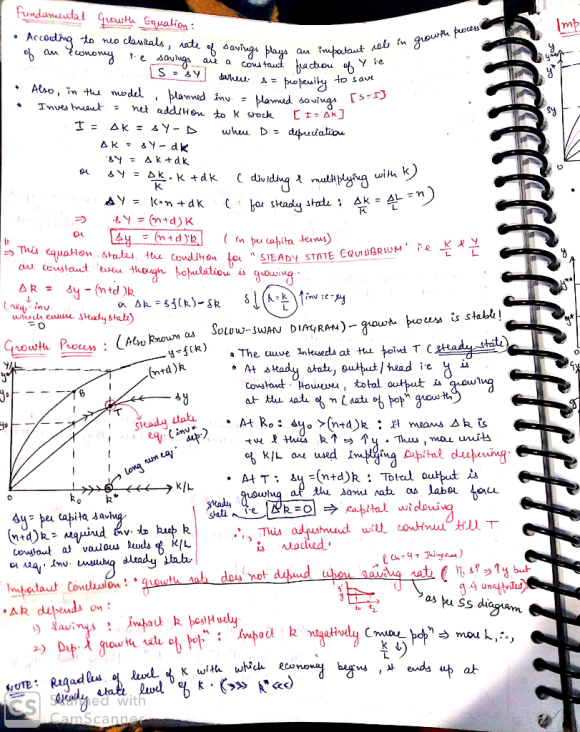 Fundamental Growth Equation:
• According to neo classicals, rate of savings plays an important role in growth process
of an economy i.e savings are a constant fraction of Y i.e
S = sY where s = propensity to save
• Also, in the model, planned inv = planned savings [S=I]
• Investment = net addition to K stock [I = ΔK]
I = ΔK = sY - D where D = depreciation
ΔK = sY - dK
sY = ΔK + dK
or sY = ΔK/K . K + dK (dividing & multiplying with K)
sY = K.n + dK (for steady state: ΔK/K = ΔL/L = n)
⇒ sY = (n+d)K
or sy = (n+d)k (in per capita terms)
⇒ This equation states the condition for "STEADY STATE EQUILIBRIUM' i.e K/L & Y/L
are constant even though population is growing.
Δk = sy - (n+d)k
(req. inv. or Δk = sf(k) - δk
δ↓ k = K/L ↑ inv i.e - sy
which ensure steady state)
= 0
Growth Process: (Also known as SOLOW-SWAN DIAGRAM) - growth process is stable!
Y/L
y = f(k)
(n+d)k
sy
B
T
steady state
eq. (inv = dep.)
long run eq.
0
k₀
k*
K/L
• The curve intersects at the point T (steady state)
• At steady state, output/head i.e y is
constant. However, total output is growing
at the rate of n (rate of popⁿ growth)
• At k₀: sy₀ > (n+d)k : It means Δk is
+ve & thus k↑ ⇒ ↑y. Thus, more units
of K/L are used implying capital deepening.
• At T: sy = (n+d)k : Total output is
growing at the same rate as labor force
steady state i.e Δk = 0 ⇒ capital widening
∴, This adjustment will continue till T
is reached.
sy = per capita saving
(n+d)k = required inv. to keep k
constant at various levels of K/L
or req. inv. ensuring steady state
Important Conclusion: • growth rate does not depend upon saving rate (If s↑ ⇒ ↑y but
g is unaffected)
as per SS diagram
• Δk depends on:
1) Savings : impact k positively
2.) Dep. & growth rate of popⁿ : impact k negatively (more popⁿ ⇒ more L, ∴,
K/L ↓)
NOTE: Regardless of level of K with which economy begins, it ends up at
steady state level of K. (>>> k* <<<)
CS Scanned with
CamScanner